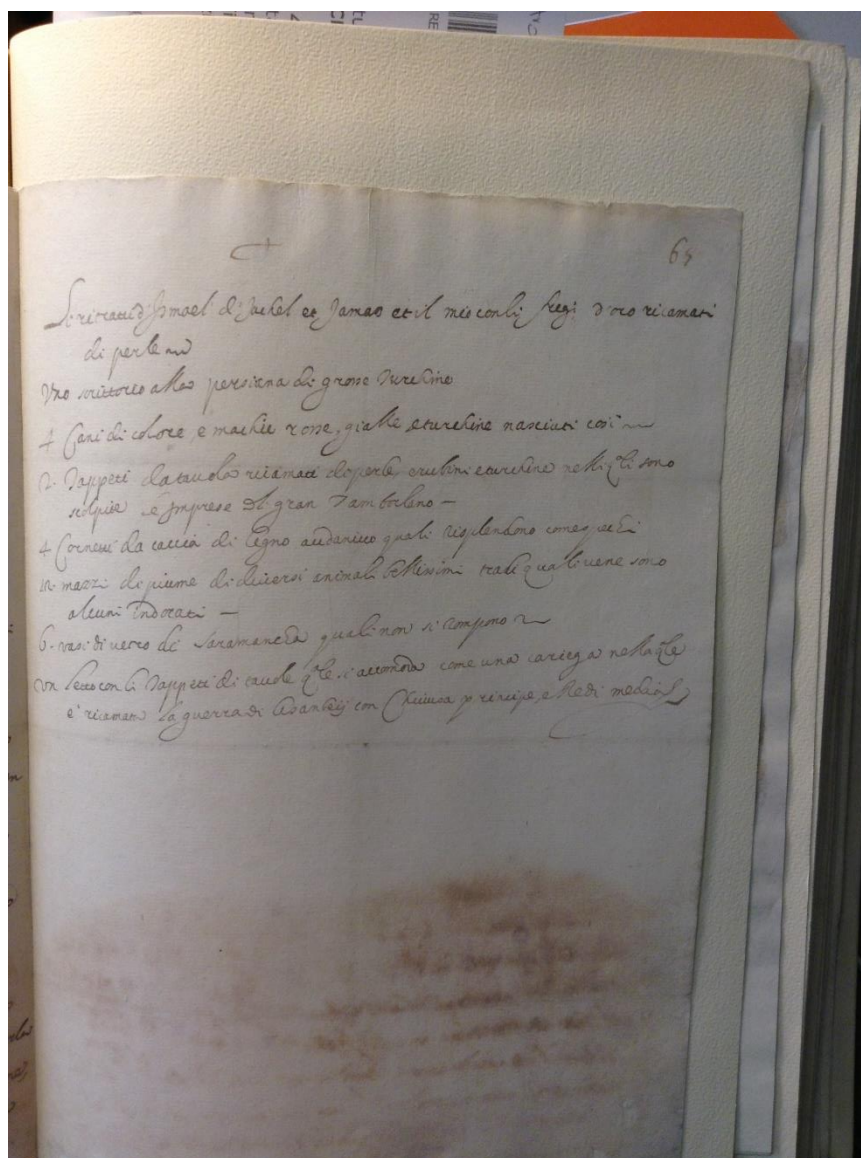 65
Li ritratti d'Ismael di Jachel et Jamas et il mio con li fregi d'oro ricamati
di perle
Uno scrittorio alla persiana di grosse turchine
4 Cani di colore, e machie rosse, gialle e turchine nasciuti cosi
2. Tappeti da tavola ricamati di perle, e rubini e turchine nelli q.li sono
scolpite le Imprese del gran Tamborlano —
4 Cornetti da caccia di legno quali risplendono come specchi
12. mazzi di piume di diversi animali bellissimi tra le quali vene sono
alcuni Indorati —
6. vasi di vetro di Saramanda quali non si rompono
Un letto con li Tappeti di tavole q.le si accomoda come una cariega nella q.le
e' ricamata la guerra di con principe, e Re di media